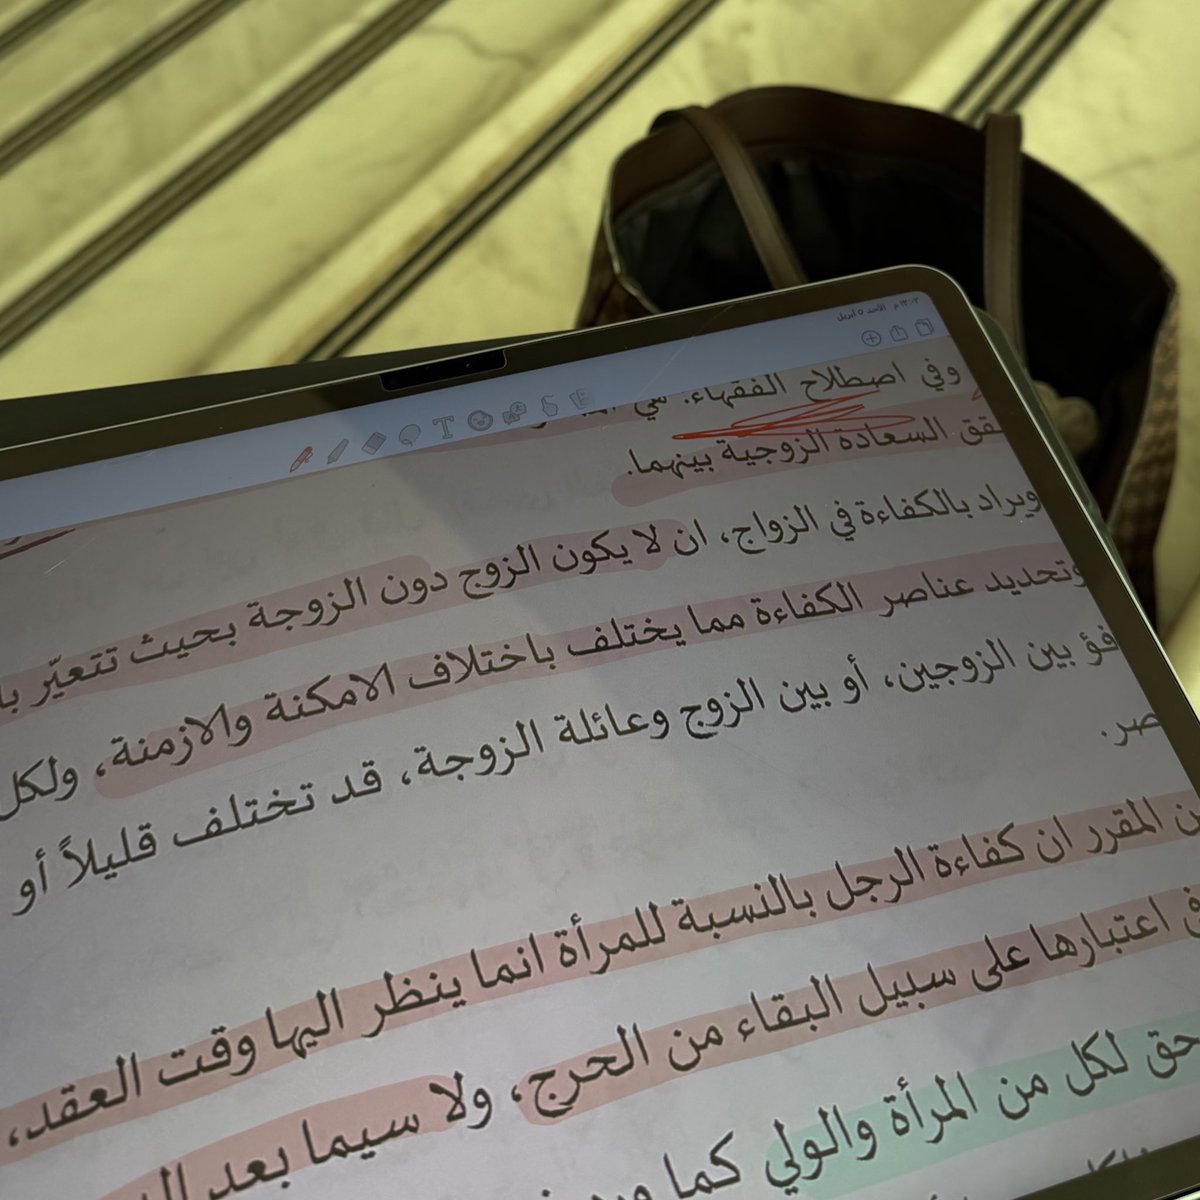 ١٢:٠٢ م الأحد ٥ أبريل
وفي اصطلاح الفقهاء: هي
السعادة الزوجية بينهما.
ويراد بالكفاءة في الزواج، ان لا يكون الزوج دون الزوجة بحيث تتعيّر
وتحديد عناصر الكفاءة مما يختلف باختلاف الامكنة والازمنة، ولكل
بين الزوجين، أو بين الزوج وعائلة الزوجة، قد تختلف قليلاً أو
المقرر ان كفاءة الرجل بالنسبة للمرأة انما ينظر اليها وقت العقد،
اعتبارها على سبيل البقاء من الحرج، ولا سيما بعد
حق لكل من المرأة والولي كما